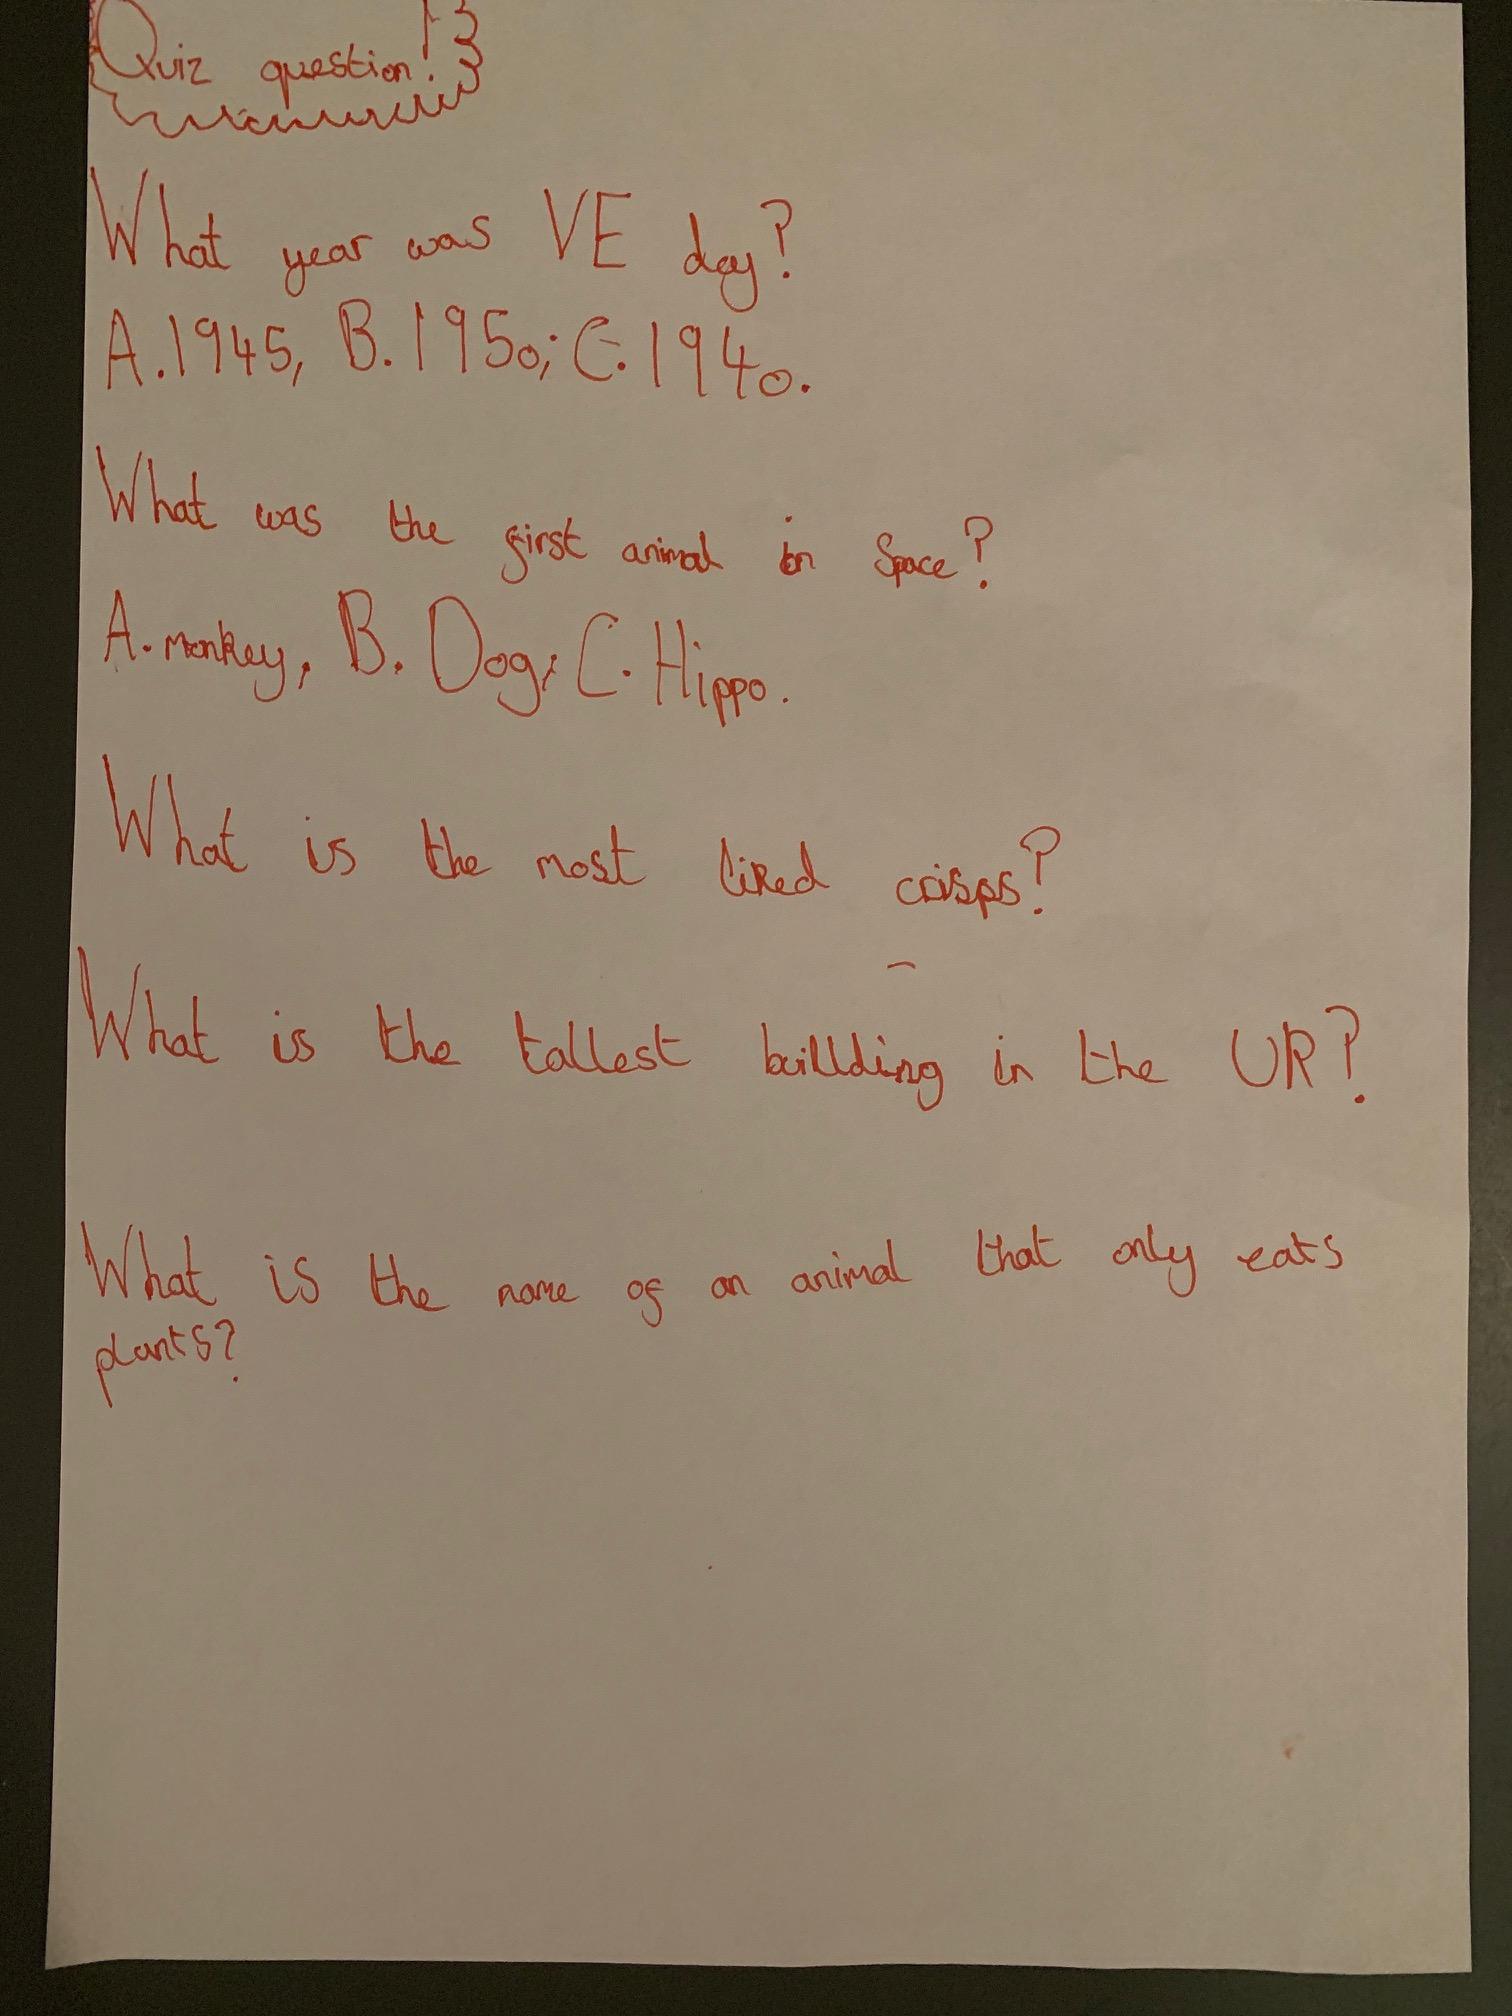 Quiz question!
What year was VE day?
A.1945, B.1950; C.1940.
What was the first animal in Space?
A. monkey, B. Dog; C. Hippo.
What is the most liked crisps?
What is the tallest buillding in the UK?
What is the name of an animal that only eats
plants?